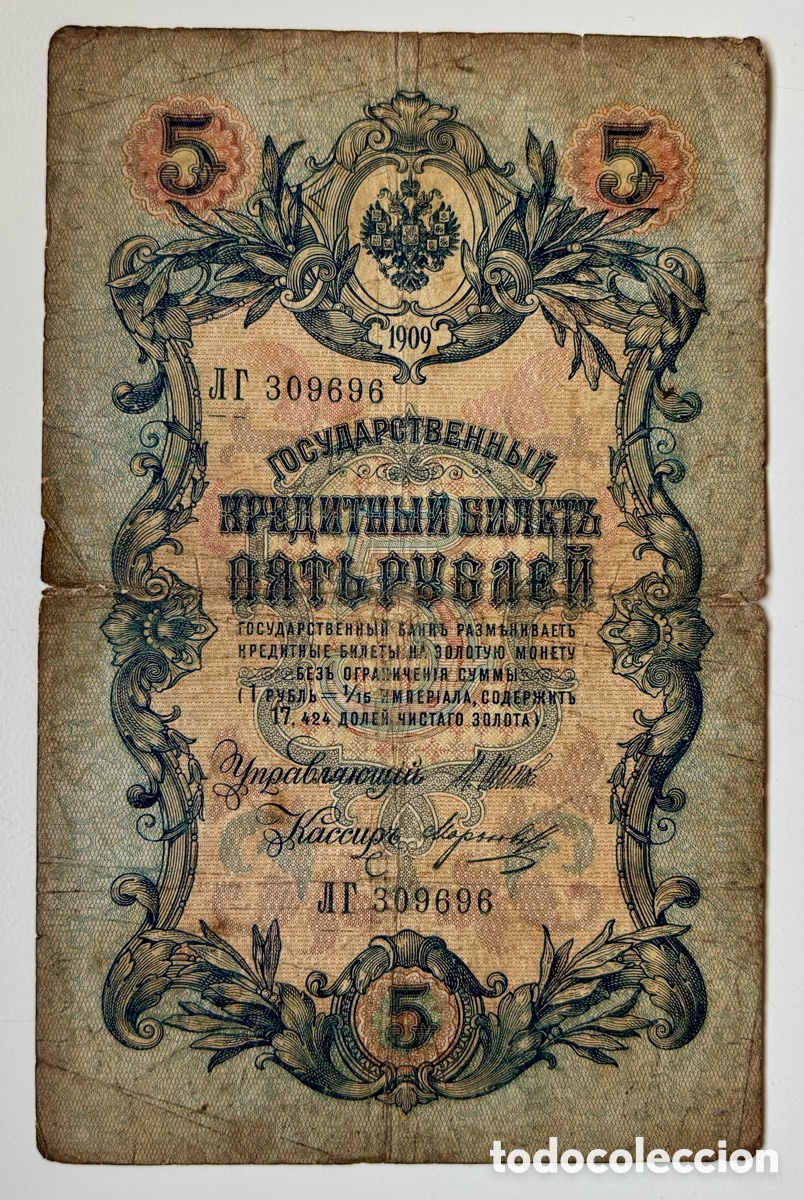 5 5
1909
ЛГ 309696
ГОСУДАРСТВЕННЫЙ
КРЕДИТНЫЙ БИЛЕТЪ
ПЯТЬ РУБЛЕЙ
ГОСУДАРСТВЕННЫЙ БАНКЪ РАЗМѢНИВАЕТЪ
КРЕДИТНЫЕ БИЛЕТЫ НА ЗОЛОТУЮ МОНЕТУ
БЕЗЪ ОГРАНИЧЕНІЯ СУММЫ
(1 РУБЛЬ = 1/15 ИМПЕРІАЛА, СОДЕРЖИТЪ
17,424 ДОЛЕЙ ЧИСТАГО ЗОЛОТА).
Управляющій
Кассиръ
ЛГ 309696
5
todocoleccion